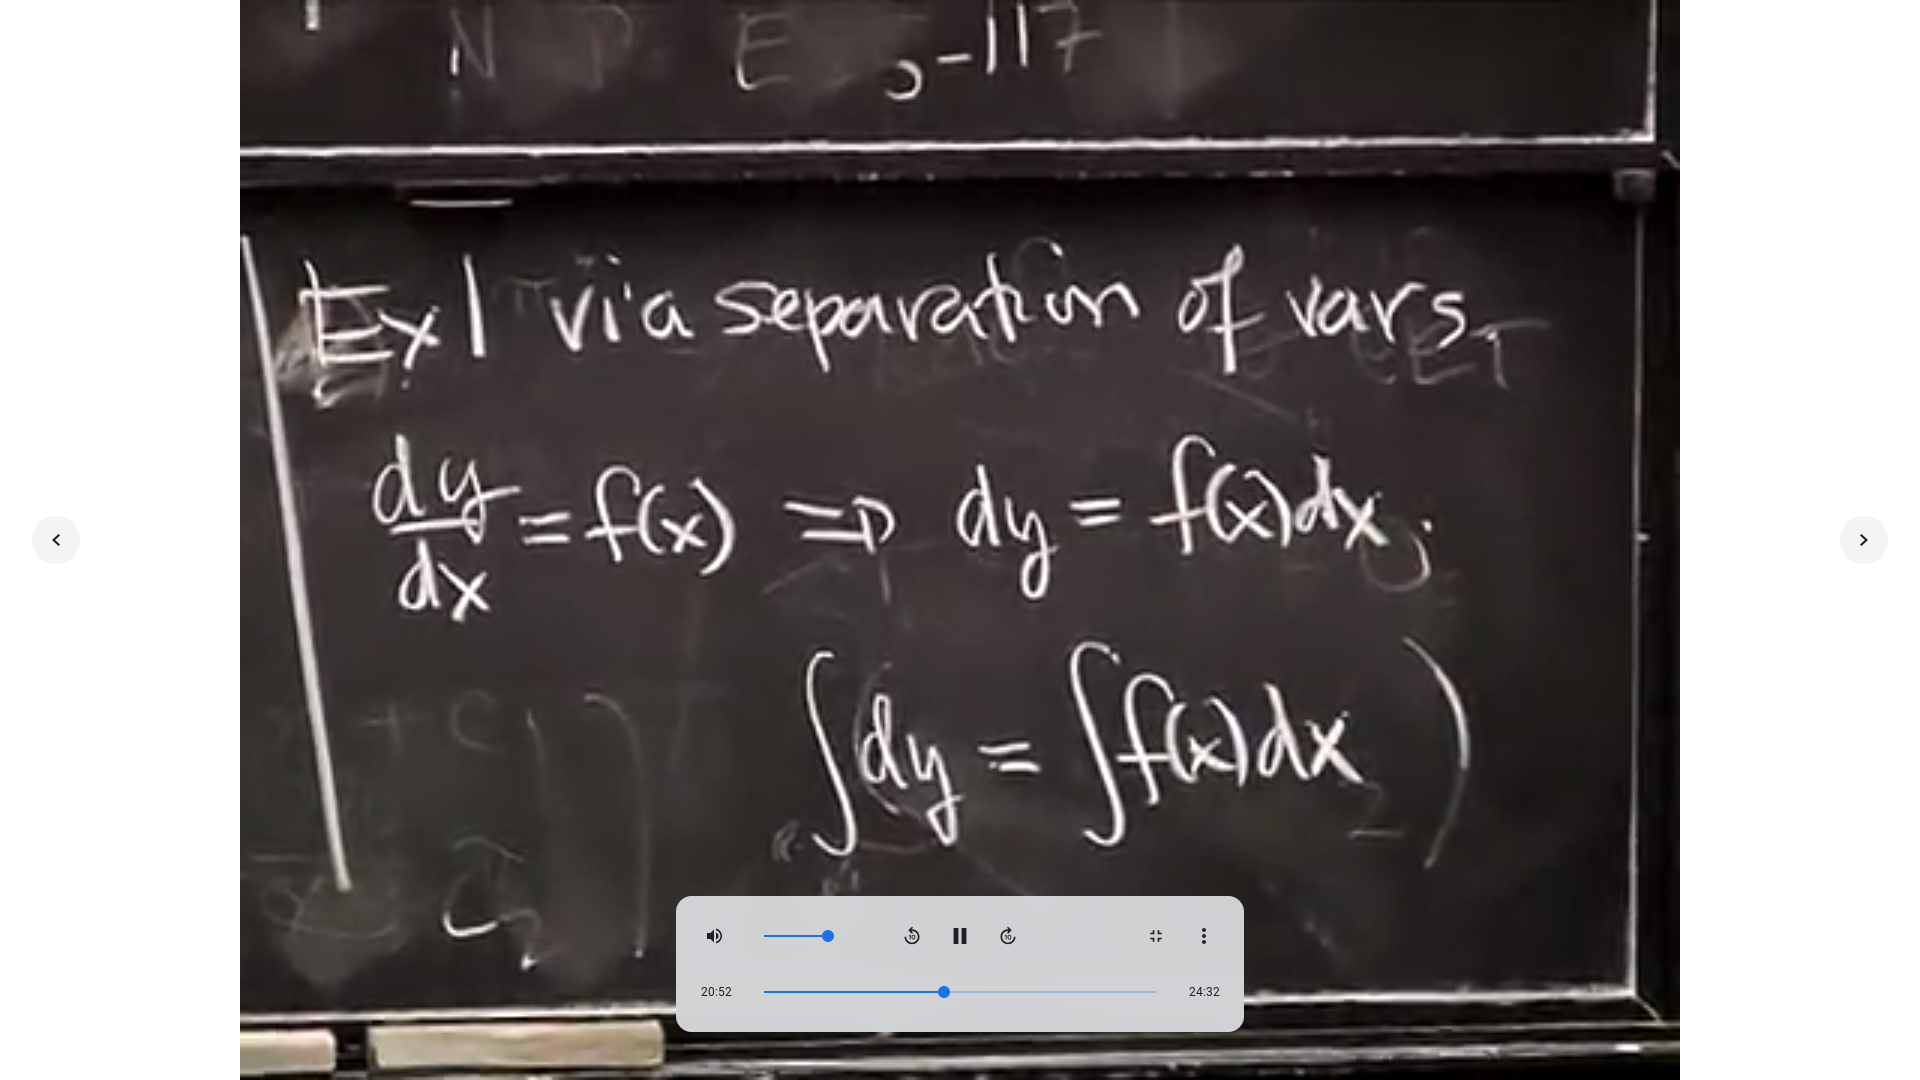 Ex 1 via separation of vars.
dy/dx = f(x) ⇒ dy = f(x)dx.
∫dy = ∫f(x)dx
20:52
24:32